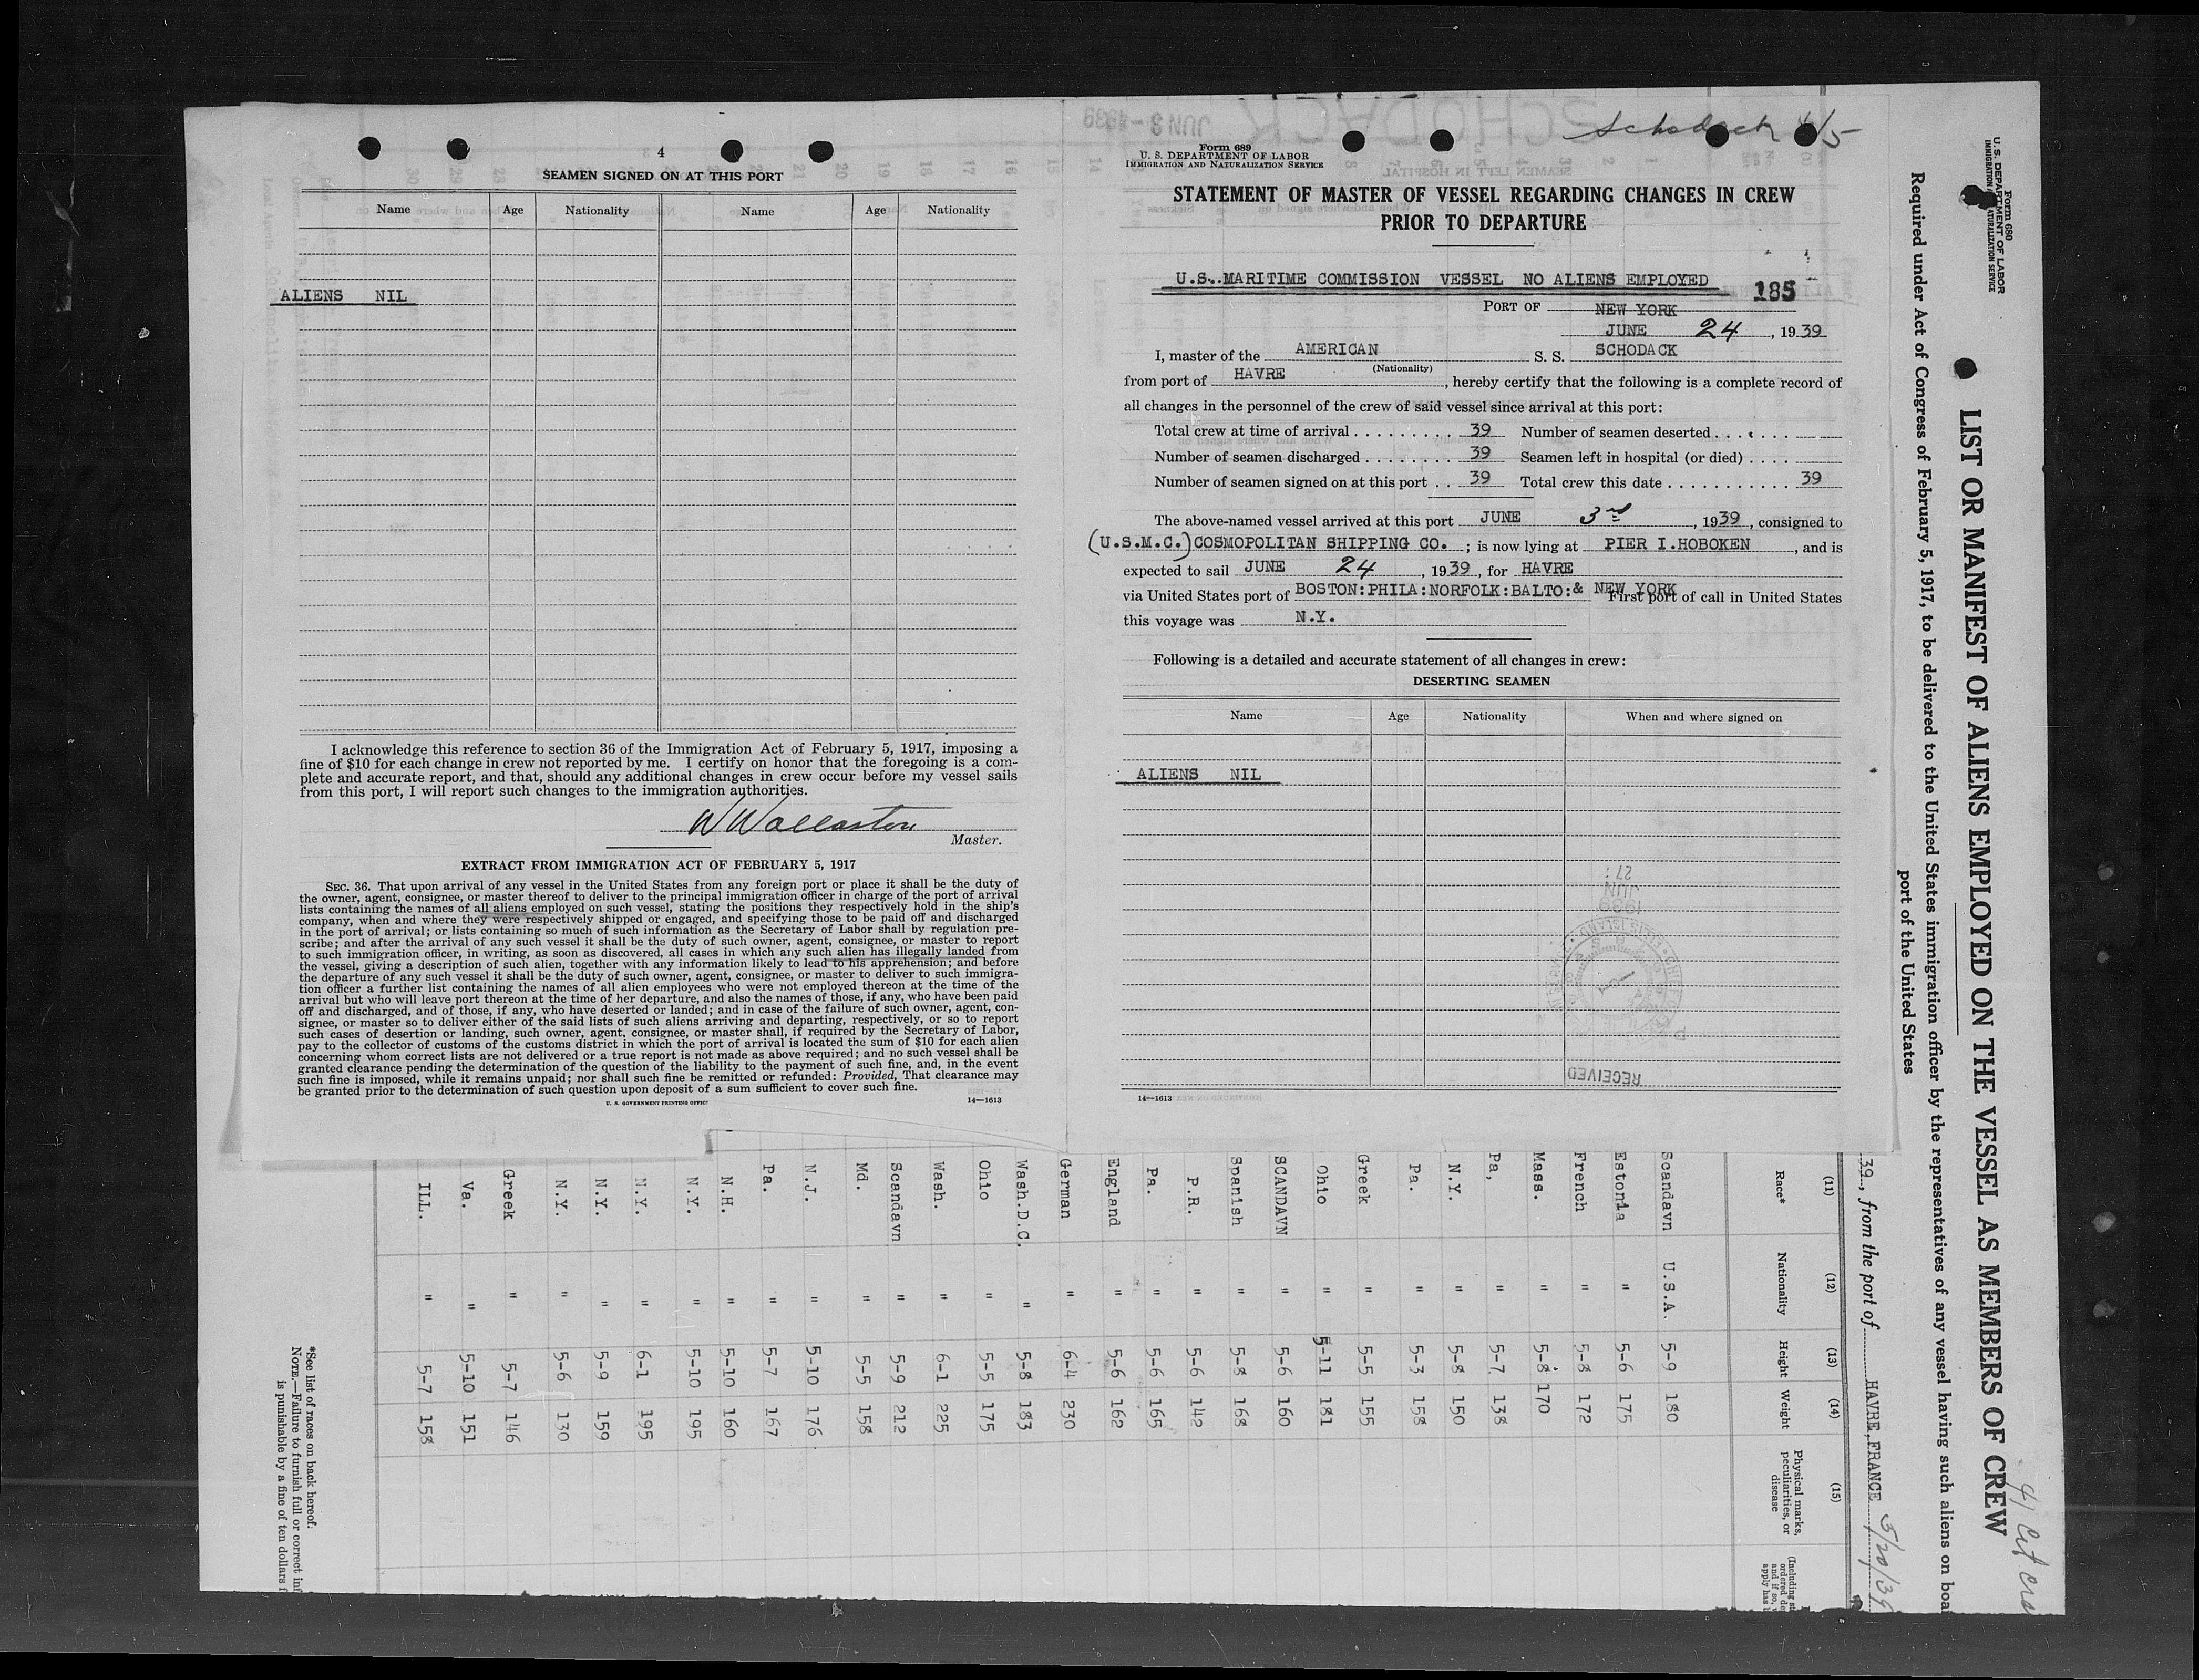 4
SEAMEN SIGNED ON AT THIS PORT
Name Age Nationality Name Age Nationality
ALIENS NIL
I acknowledge this reference to section 36 of the Immigration Act of February 5, 1917, imposing a
fine of $10 for each change in crew not reported by me. I certify on honor that the foregoing is a com-
plete and accurate report, and that, should any additional changes in crew occur before my vessel sails
from this port, I will report such changes to the immigration authorities.
W Wollaston
Master.
EXTRACT FROM IMMIGRATION ACT OF FEBRUARY 5, 1917
SEC. 36. That upon arrival of any vessel in the United States from any foreign port or place it shall be the duty of
the owner, agent, consignee, or master thereof to deliver to the principal immigration officer in charge of the port of arrival
lists containing the names of all aliens employed on such vessel, stating the positions they respectively hold in the ship's
company, when and where they were respectively shipped or engaged, and specifying those to be paid off and discharged
in the port of arrival; or lists containing so much of such information as the Secretary of Labor shall by regulation pre-
scribe; and after the arrival of any such vessel it shall be the duty of such owner, agent, consignee, or master to report
to such immigration officer, in writing, as soon as discovered, all cases in which any such alien has illegally landed from
the vessel, giving a description of such alien, together with any information likely to lead to his apprehension; and before
the departure of any such vessel it shall be the duty of such owner, agent, consignee, or master to deliver to such immigra-
tion officer a further list containing the names of all alien employees who were not employed thereon at the time of the
arrival but who will leave port thereon at the time of her departure, and also the names of those, if any, who have been paid
off and discharged, and of those, if any, who have deserted or landed; and in case of the failure of such owner, agent, con-
signee, or master so to deliver either of the said lists of such aliens arriving and departing, respectively, or so to report
such cases of desertion or landing, such owner, agent, consignee, or master shall, if required by the Secretary of Labor,
pay to the collector of customs of the customs district in which the port of arrival is located the sum of $10 for each alien
concerning whom correct lists are not delivered or a true report is not made as above required; and no such vessel shall be
granted clearance pending the determination of the question of the liability to the payment of such fine, and, in the event
such fine is imposed, while it remains unpaid; nor shall such fine be remitted or refunded: Provided, That clearance may
be granted prior to the determination of such question upon deposit of a sum sufficient to cover such fine.
U. S. GOVERNMENT PRINTING OFFICE 14—1613
Schodack 4/5
Form 689
U. S. DEPARTMENT OF LABOR
IMMIGRATION AND NATURALIZATION SERVICE
STATEMENT OF MASTER OF VESSEL REGARDING CHANGES IN CREW
PRIOR TO DEPARTURE
U.S..MARITIME COMMISSION VESSEL NO ALIENS EMPLOYED 185
PORT OF NEW YORK
JUNE 24, 1939
I, master of the AMERICAN S. S. SCHODACK
(Nationality)
from port of HAVRE, hereby certify that the following is a complete record of
all changes in the personnel of the crew of said vessel since arrival at this port:
Total crew at time of arrival . . . . . . . . . 39 Number of seamen deserted . . . . . . .
Number of seamen discharged . . . . . . . . 39 Seamen left in hospital (or died) . . . .
Number of seamen signed on at this port . . 39 Total crew this date . . . . . . . . . . . 39
The above-named vessel arrived at this port JUNE 3rd, 1939, consigned to
(U.S.M.C.) COSMOPOLITAN SHIPPING CO. ; is now lying at PIER I.HOBOKEN, and is
expected to sail JUNE 24, 1939, for HAVRE
via United States port of BOSTON:PHILA:NORFOLK:BALTO:& NEW YORK First port of call in United States
this voyage was N.Y.
Following is a detailed and accurate statement of all changes in crew:
DESERTING SEAMEN
Name Age Nationality When and where signed on
ALIENS NIL
1939
JUN
27
RECEIVED
14—1613
Form 680
U. S. DEPARTMENT OF LABOR
IMMIGRATION NATURALIZATION SERVICE
LIST OR MANIFEST OF ALIENS EMPLOYED ON THE VESSEL AS MEMBERS OF CREW
41 Cit crew
Required under Act of Congress of February 5, 1917, to be delivered to the United States immigration officer by the representatives of any vessel having such aliens on boa
port of the United States
39, from the port of HAVRE,FRANCE 5/20/39
(11) (12) (13) (14) (15)
Race* Nationality Height Weight Physical marks, peculiarities, or disease
Scandavn U.S.A. 5-9 180
Estonia " 5-6 175
French " 5-8 172
Mass. " 5-8 170
Pa, " 5-7 138
N.Y. " 5-8 150
Pa. " 5-3 158
Greek " 5-5 155
Ohio " 5-11 181
SCANDAVN " 5-6 160
Spanish " 5-8 168
P.R. " 5-6 142
Pa. " 5-6 165
England " 5-6 162
German " 6-4 230
Wash.D.C. " 5-8 183
Ohio " 5-5 175
Wash. " 6-1 225
Scandavn " 5-9 212
Md. " 5-5 158
N.J. " 5-10 176
Pa. " 5-7 167
N.H. " 5-10 160
N.Y. " 5-10 195
N.Y. " 6-1 195
N.Y. " 5-9 159
N.Y. " 5-6 130
Greek " 5-7 146
Va. " 5-10 151
ILL. " 5-7 158
*See list of races on back hereof.
NOTE.—Failure to furnish full or correct inf
is punishable by a fine of ten dollars f